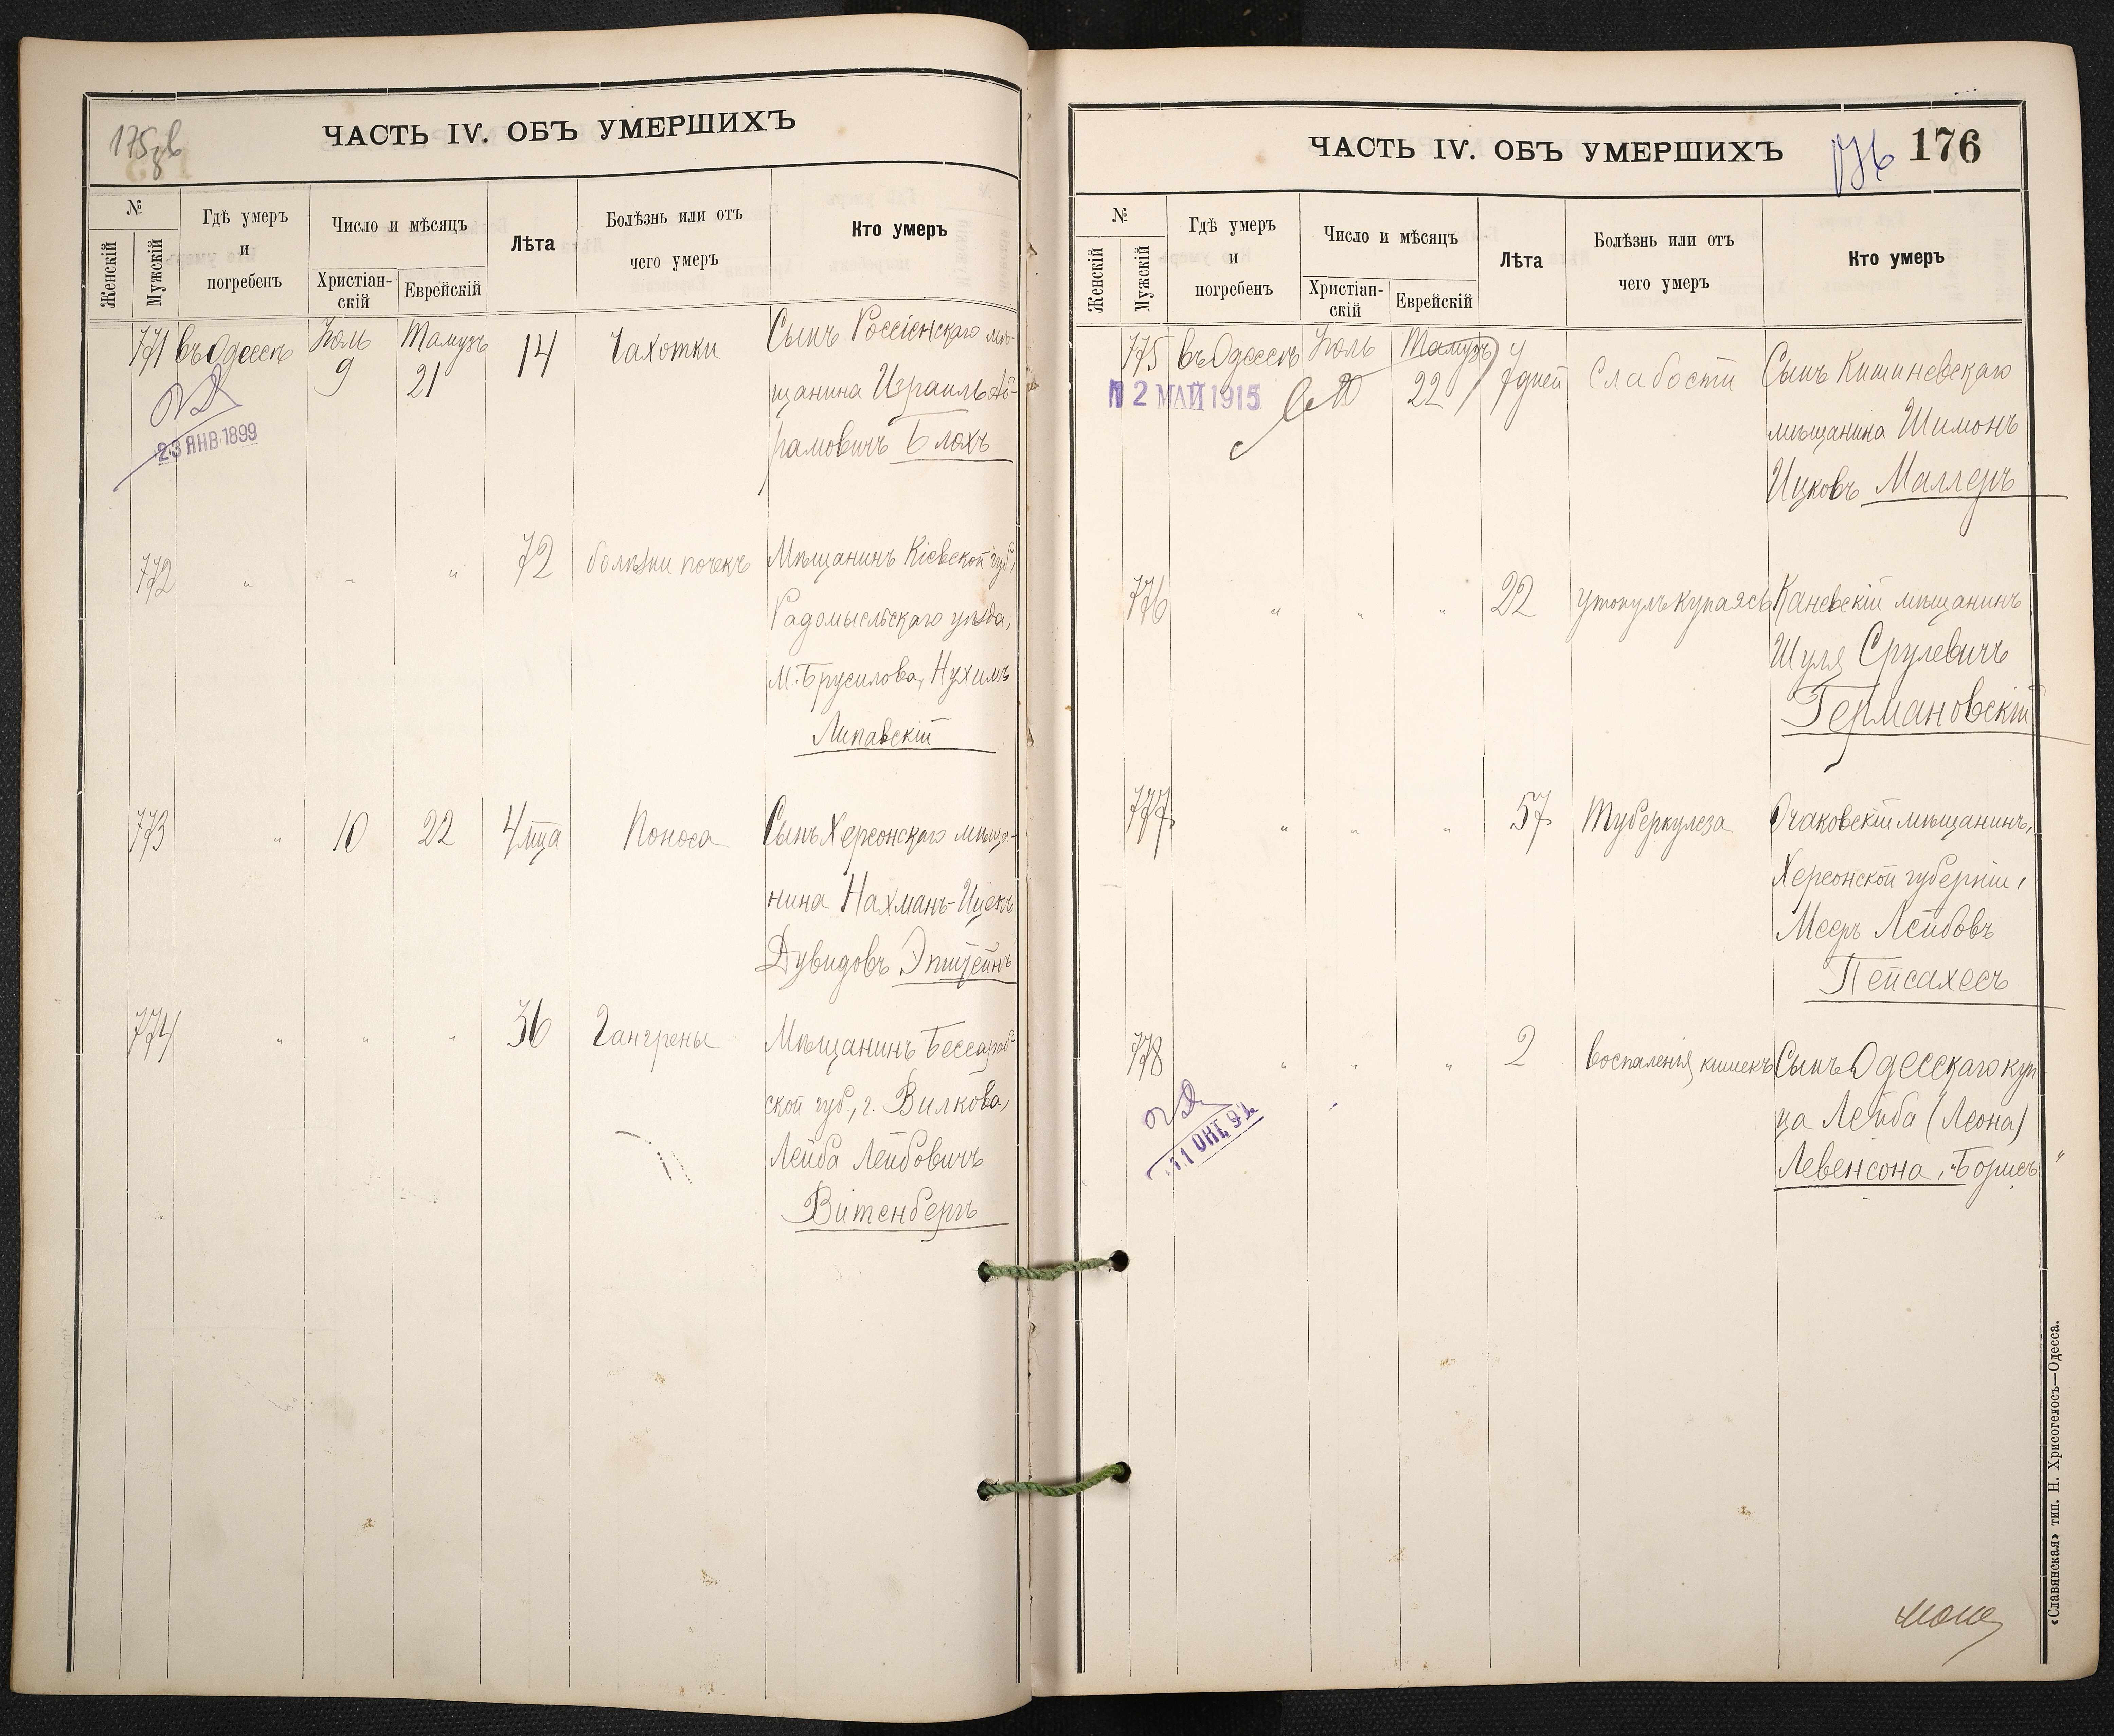 175 об
ЧАСТЬ IV. ОБЪ УМЕРШИХЪ
№
Женскій
Мужскій
Гдѣ умеръ
и
погребенъ
Число и мѣсяцъ
Христіан-
скій
Еврейскій
Лѣта
Болѣзнь или отъ
чего умеръ
Кто умеръ
771 въ Одессѣ Іюль 9 Тамузъ 21 14 Чахотки Сынъ Россіенскаго мѣ-
щанина Израиль Аб-
рамовичъ Блохъ
23 ЯНВ 1899
772 " " " 72 болѣзни почекъ Мѣщанинъ Кіевской губ.,
Радомысльскаго уѣзда,
М. Брусилова, Нухимъ
Липавскій
773 " 10 22 4 мѣца Поноса Сынъ Херсонскаго мѣща-
нина Нахманъ-Ицекъ
Дувидовъ Эпштейнъ
774 " " " 36 Гангрены Мѣщанинъ Бессараб-
ской губ., г. Вилкова,
Лейба Лейбовичъ
Витенбергъ
ЧАСТЬ IV. ОБЪ УМЕРШИХЪ
176 176
№
Женскій
Мужскій
Гдѣ умеръ
и
погребенъ
Число и мѣсяцъ
Христіан-
скій
Еврейскій
Лѣта
Болѣзнь или отъ
чего умеръ
Кто умеръ
775 въ Одессѣ Іюль 10 Тамузъ 22 7 дней Слабости Сынъ Кишиневскаго
мѣщанина Шимонъ
Ицковъ Маллеръ
12 МАЙ 1915
776 " " " 22 утонулъ купаясь Каневскій мѣщанинъ
Шуля Срулевичъ
Германовскій
777 " " " 57 Туберкулеза Очаковскій мѣщанинъ,
Херсонской губерніи,
Мееръ Лейбовъ
Пейсахесъ
778 " " " 2 Воспаленія кишекъ Сынъ Одесскаго куп-
ца Лейба (Леона)
Левенсона, "Борисъ"
11 ОКТ. 92
«Славянская» тип. Н. Хрисогелосъ—Одесса.